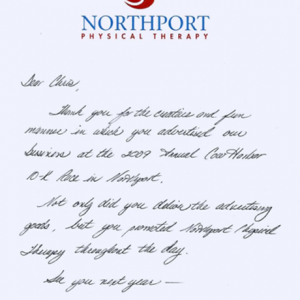 NORTHPORT
PHYSICAL THERAPY
Dear Chris,
Thank you for the creative and fun
manner in which you advertised our
business at the 2009 Annual Cow Harbor
10-K Race in Northport.
Not only did you deliver the advertising
goods, but you promoted Northport Physical
Therapy throughout the day.
See you next year —